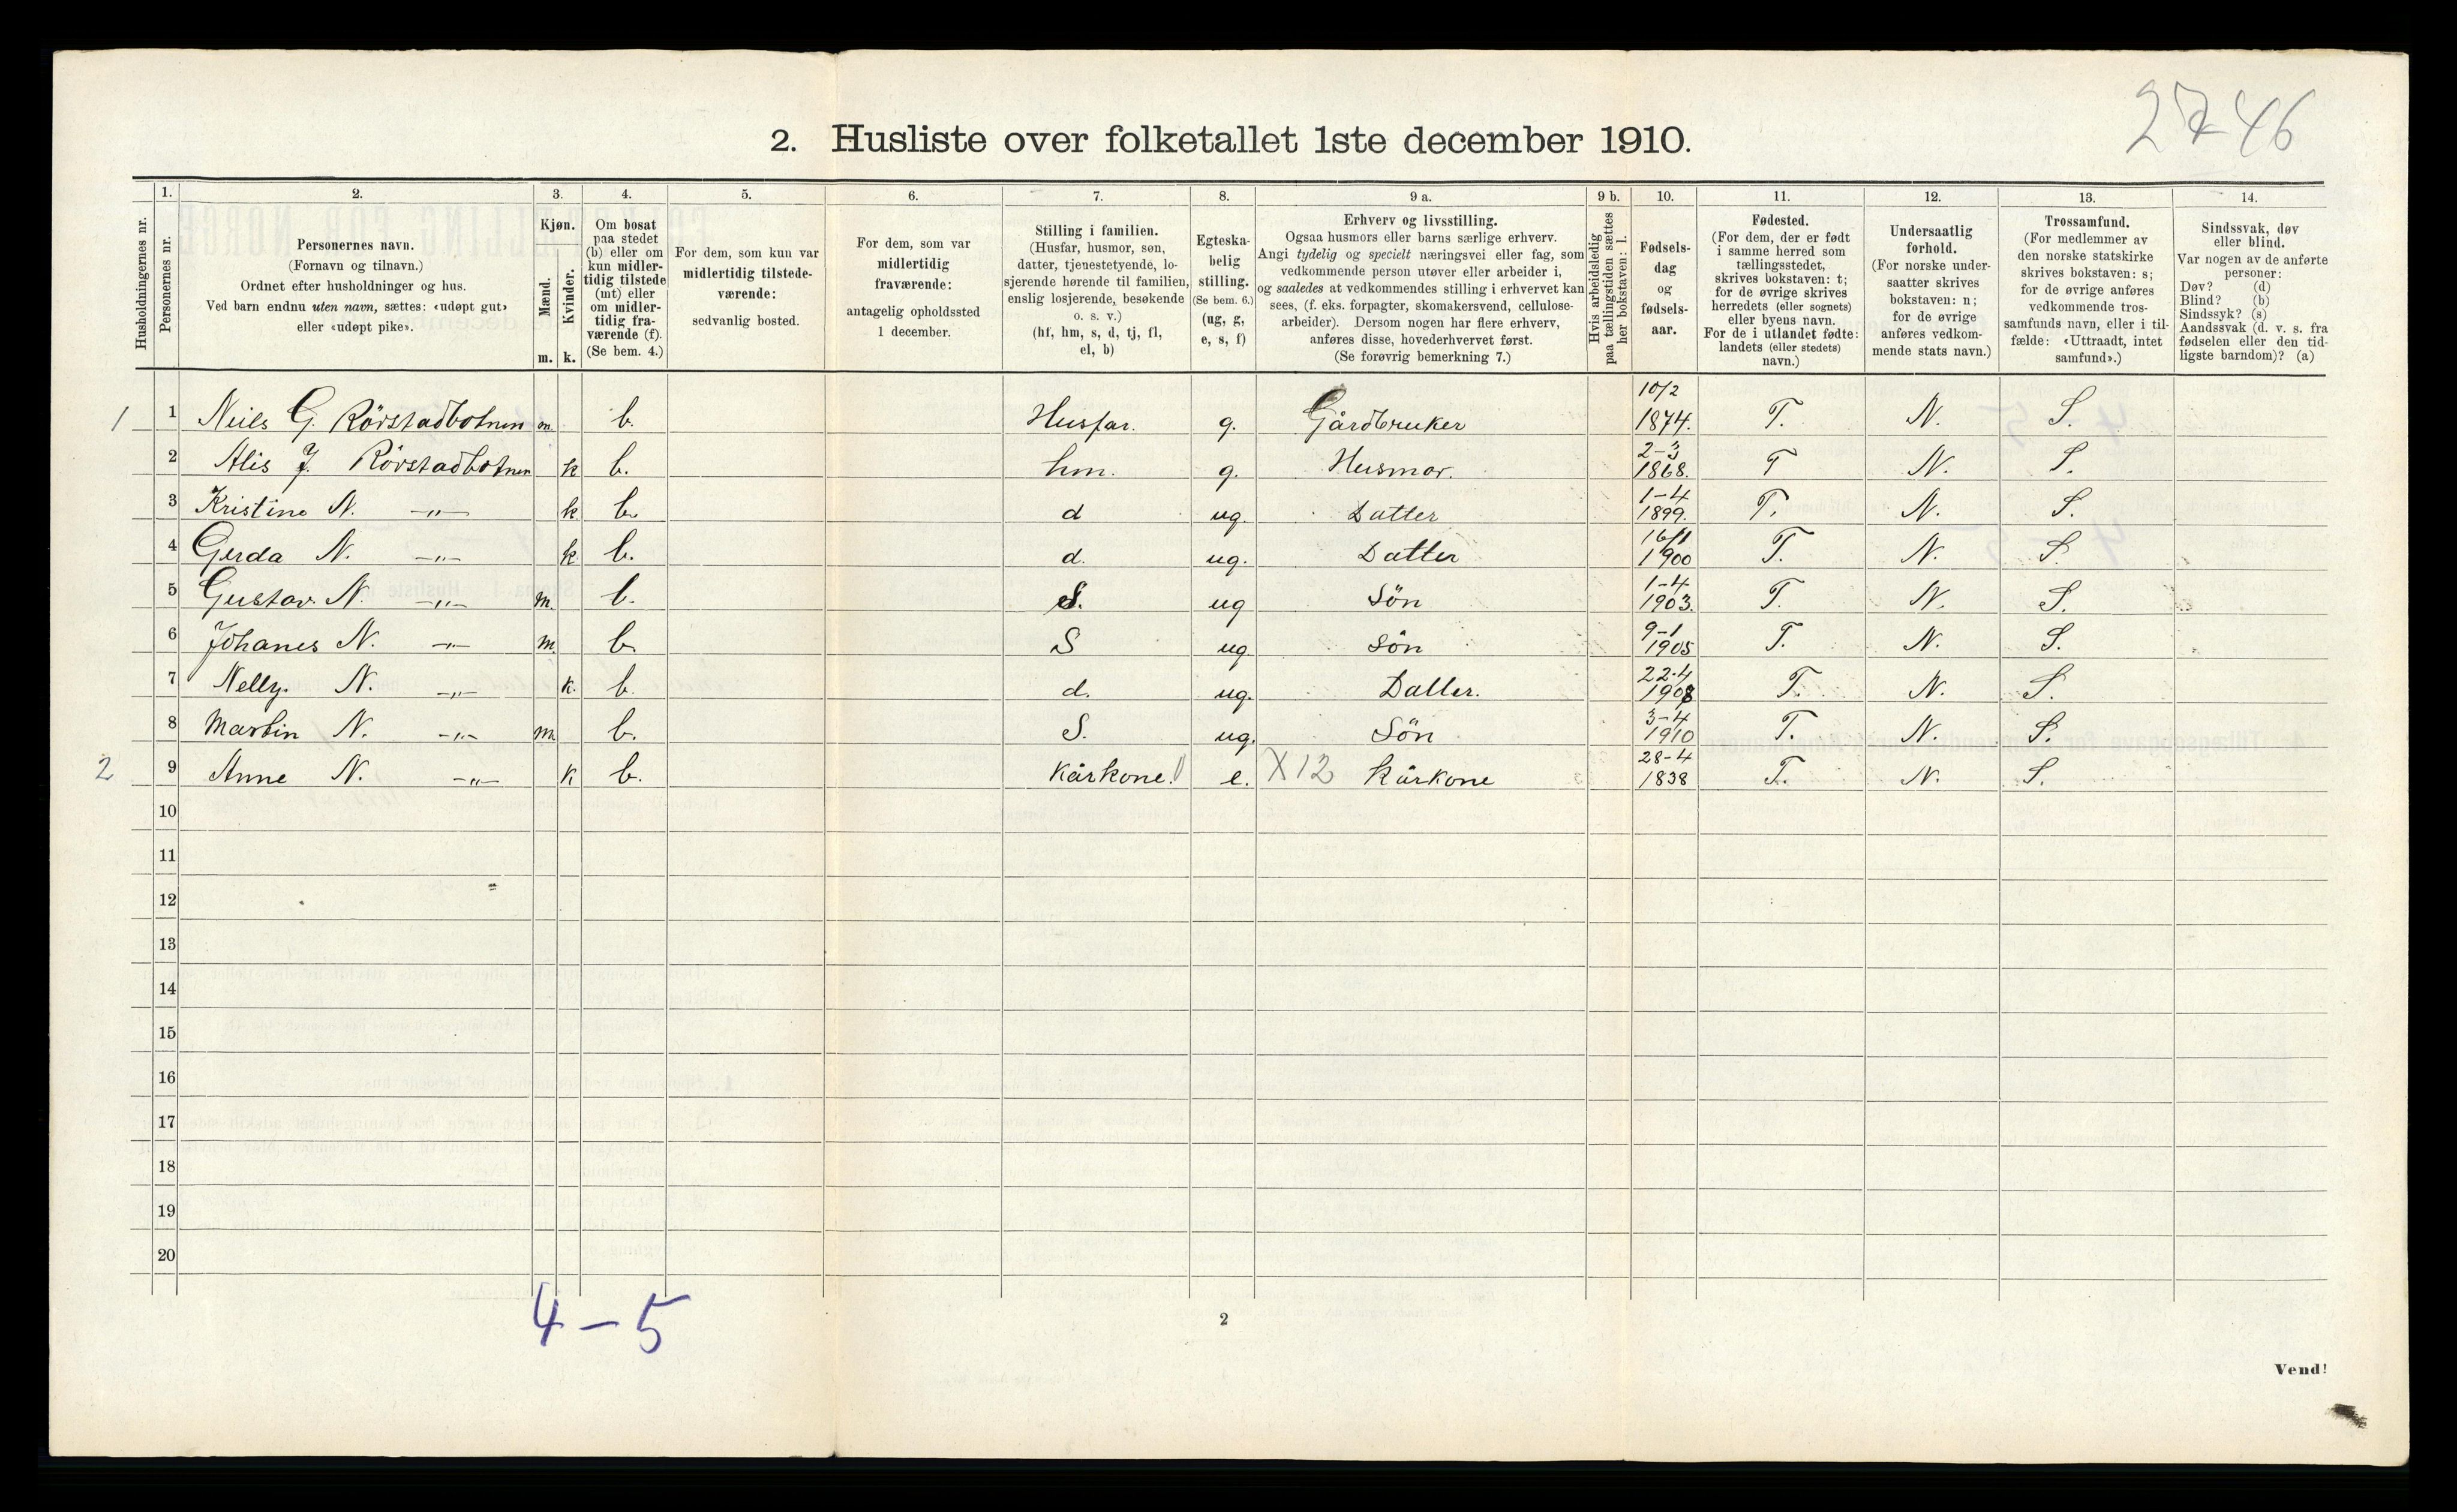 27 46
2. Husliste over folketallet 1ste december 1910.
Husholdningernes nr.
1.
Personernes nr.
2.
Personernes navn.
(Fornavn og tilnavn.)
Ordnet efter husholdninger og hus.
Ved barn endnu uten navn, sættes: «udøpt gut»
eller «udøpt pike».
3.
Kjøn.
Mænd.
Kvinder.
m. k.
4.
Om bosat
paa stedet
(b) eller om
kun midler-
tidig tilstede
(mt) eller
om midler-
tidig fra-
værende (f).
(Se bem. 4.)
5.
For dem, som kun var
midlertidig tilstede-
værende:
sedvanlig bosted.
6.
For dem, som var
midlertidig
fraværende:
antagelig opholdssted
1 december.
7.
Stilling i familien.
(Husfar, husmor, søn,
datter, tjenestetyende, lo-
sjerende hørende til familien,
enslig losjerende, besøkende
o. s. v.)
(hf, hm, s, d, tj, fl,
el, b)
8.
Egteska-
belig
stilling.
(Se bem. 6.)
(ug, g,
e, s, f)
9 a.
Erhverv og livsstilling.
Ogsaa husmors eller barns særlige erhverv.
Angi tydelig og specielt næringsvei eller fag, som
vedkommende person utøver eller arbeider i,
og saaledes at vedkommendes stilling i erhvervet kan
sees, (f. eks. forpagter, skomakersvend, cellulose-
arbeider). Dersom nogen har flere erhverv,
anføres disse, hovederhvervet først.
(Se forøvrig bemerkning 7.)
9 b.
Hvis arbeidsledig
paa tællingstiden sættes
her bokstaven: l.
10.
Fødsels-
dag
og
fødsels-
aar.
11.
Fødested.
(For dem, der er født
i samme herred som
tællingsstedet,
skrives bokstaven: t;
for de øvrige skrives
herredets (eller sognets)
eller byens navn.
For de i utlandet fødte:
landets (eller stedets)
navn.)
12.
Undersaatlig
forhold.
(For norske under-
saatter skrives
bokstaven: n;
for de øvrige
anføres vedkom-
mende stats navn.)
13.
Trossamfund.
(For medlemmer av
den norske statskirke
skrives bokstaven: s;
for de øvrige anføres
vedkommende tros-
samfunds navn, eller i til-
fælde: «Uttraadt, intet
samfund».)
14.
Sindssvak, døv
eller blind.
Var nogen av de anførte
personer:
Døv? (d)
Blind? (b)
Sindssyk? (s)
Aandssvak (d. v. s. fra
fødselen eller den tid-
ligste barndom)? (a)
1 1 Neils G. Rörstadbotnen m. b. Husfar. g. Gårdbruker 10/2 1874. T. N. S.
2 Alis J. Rörstadbotnen k b. hm. g. Husmor. 2-3 1868. T N. S.
3 Kristine N. -„- k b. d ug. Datter 1-4 1899. T. N. S.
4 Gerda N. -„- k b. d. ug. Datter 16/1 1900 T. N. S.
5 Gustav. N. -„- m. b. S. ug Sön 1-4 1903. T. N. S.
6 Johanes N. -„- m. b. S ug Sön 9-1 1905 T. N. S.
7 Nelly. N. -„- k. b. d. ug. Datter. 22-4 1908 T. N. S.
8 Martin N. -„- m b. S. ug. Sön 3-4 1910 T. N. S.
2 9 Anne N. -„- k b. Kårkone. e. X12 Kårkone 28-4 1838 T. N. S.
10
11
12
13
14
15
16
17
18
19
20
4-5
2
Vend!